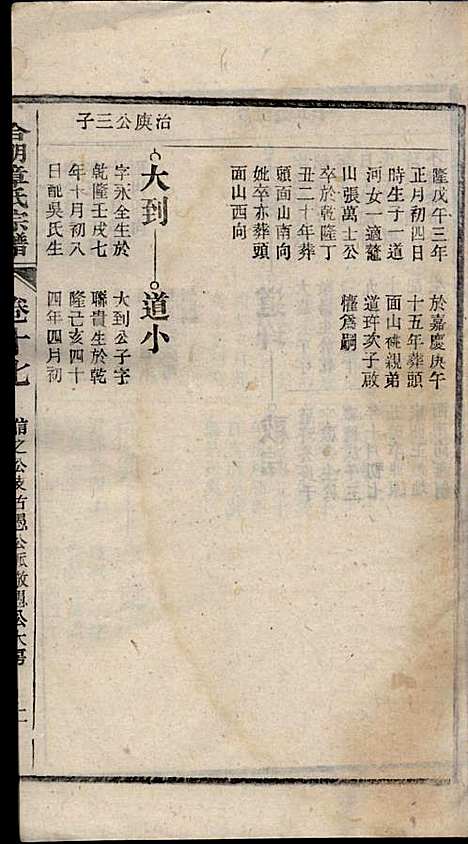 隆戊午三年
正月初四日
時生子一道
河女一適鼇
山張萬士公
卒於乾隆丁
丑二十年葬
頭面山南向
妣卒亦葬頭
面山西向
於嘉慶庚午
十五年葬頭
面山祧親弟
道玝次子啟
爲嗣
治庾公三子
大到
字永全生於
乾隆壬戌七
年十月初八
日配吳氏生
道小
大到公子字
聯貴生於乾
隆己亥四十
四年四月初
湖章氏宗譜
卷十七
公派敬愚公大房